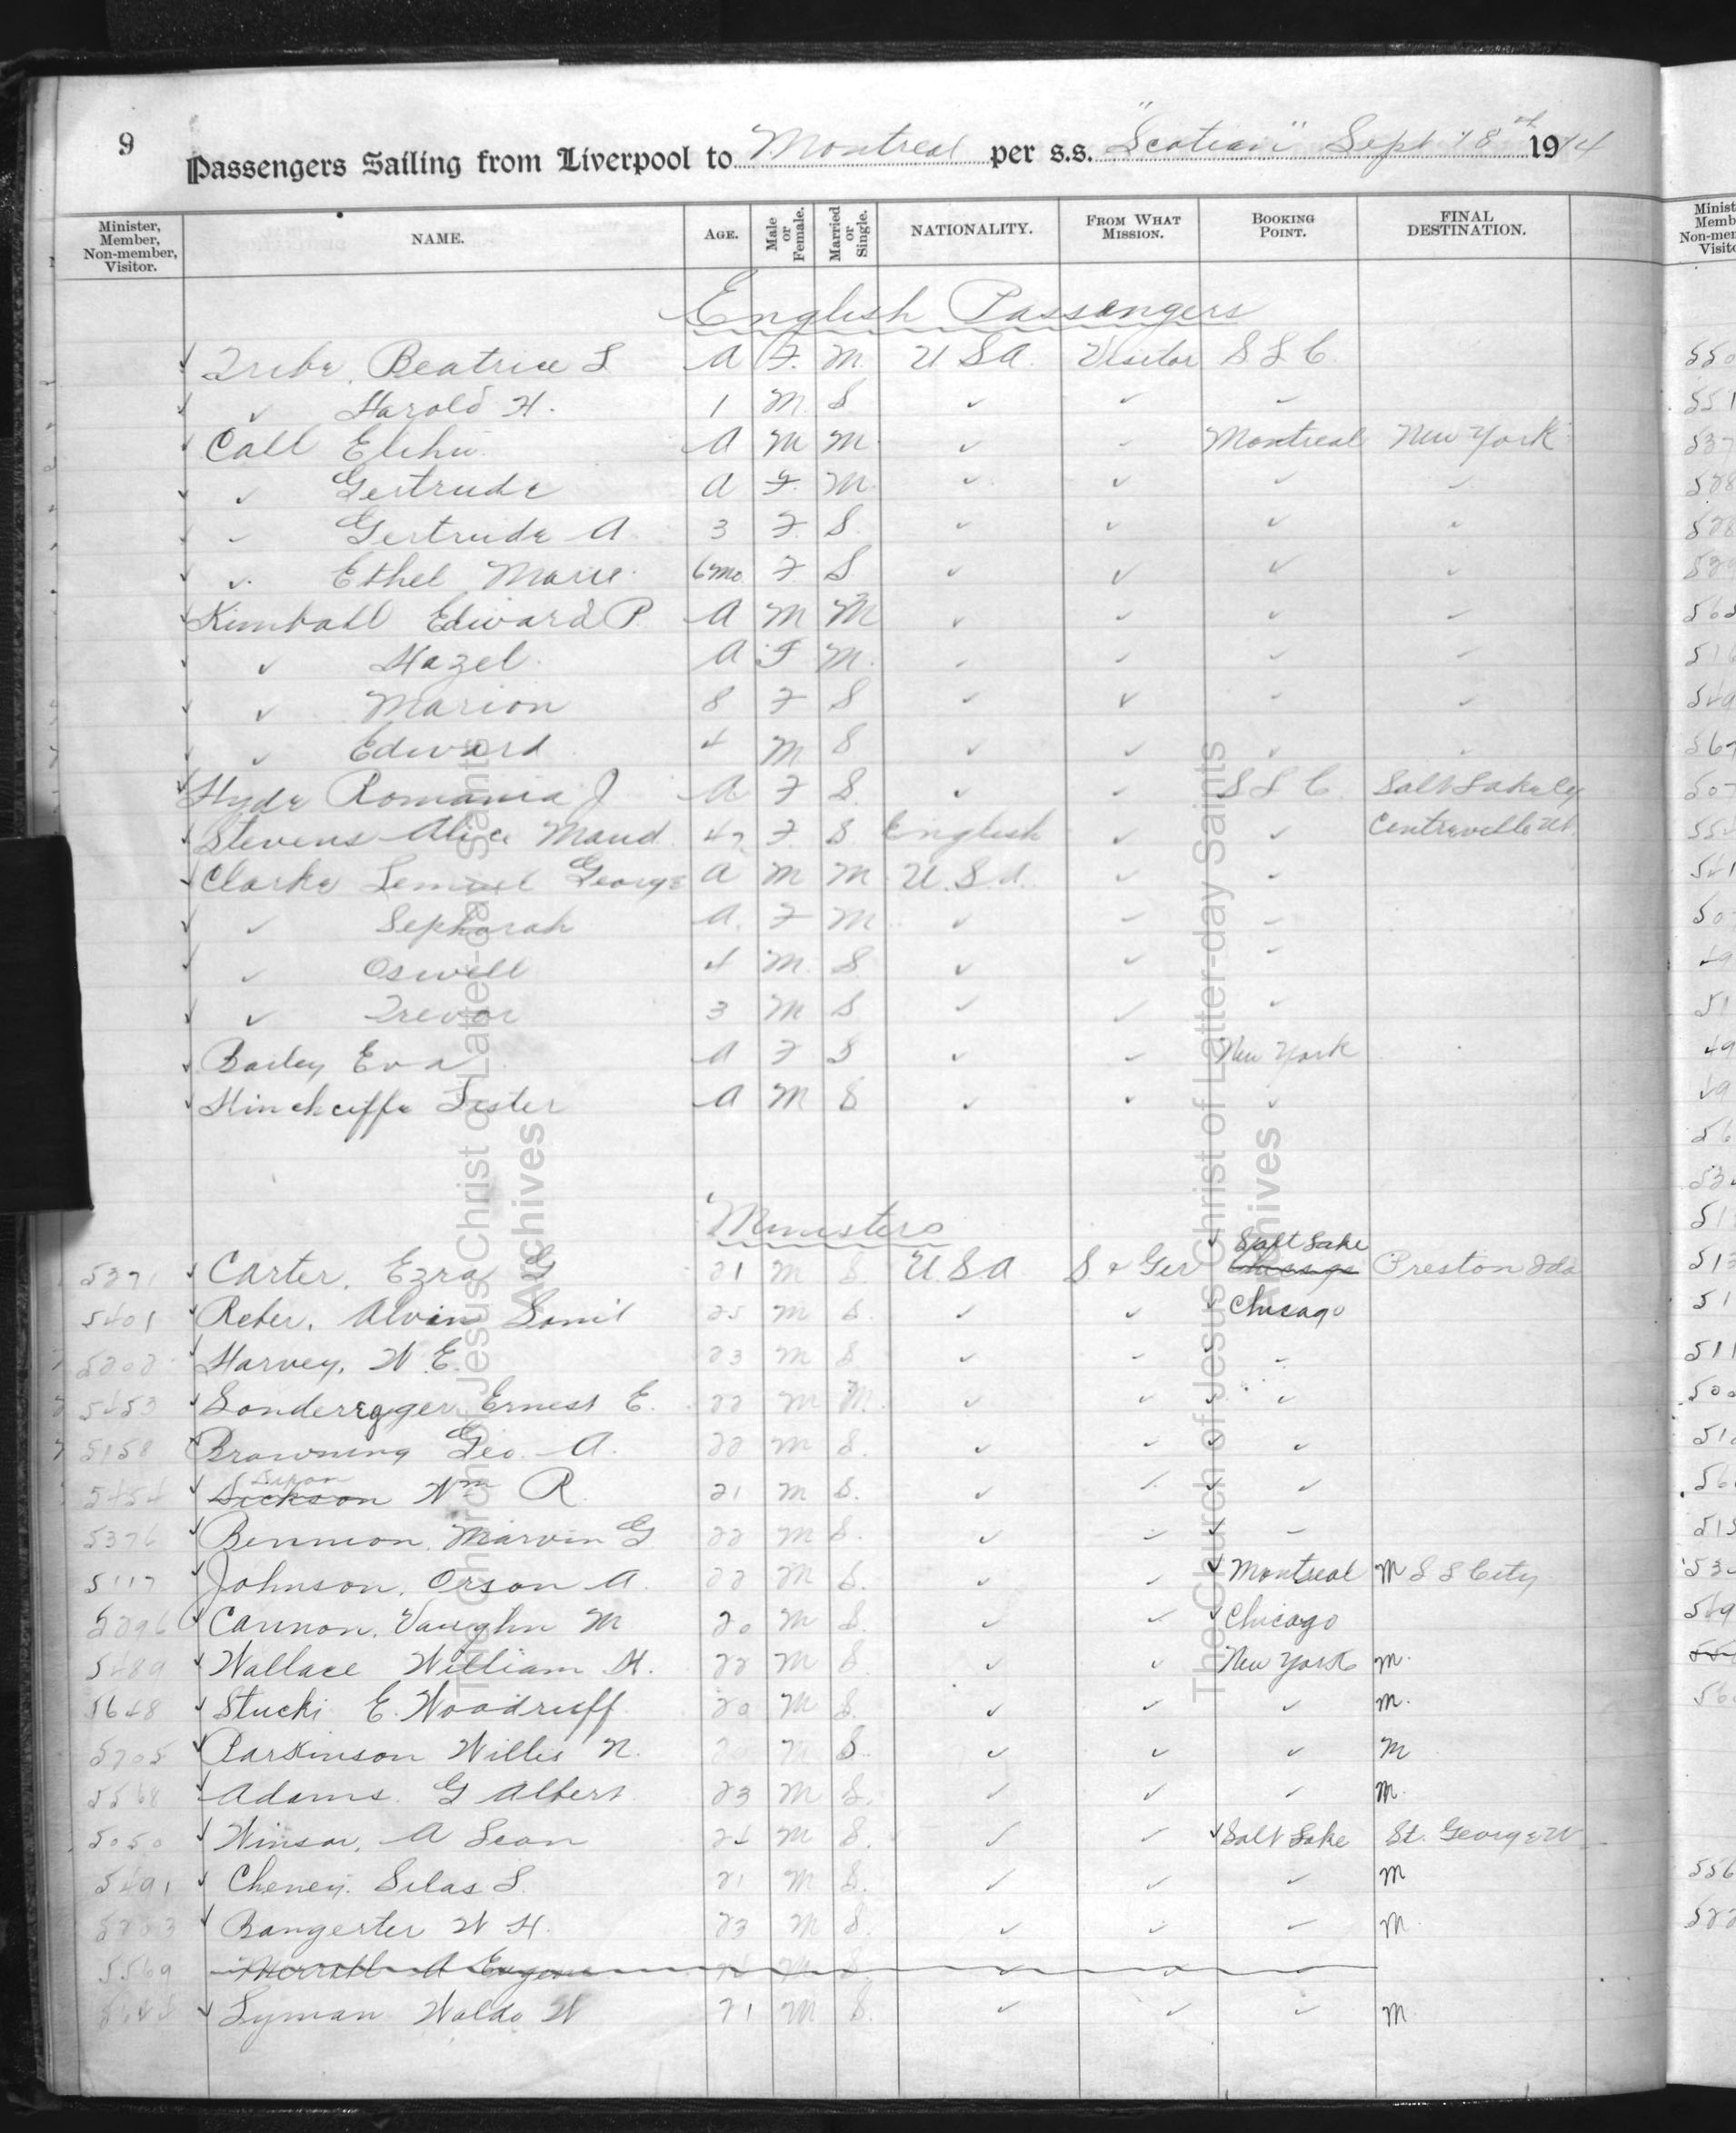 9
Passengers Sailing from Liverpool to Montreal per s.s. "Scotian" Sept 18th 1914
Minister, Member, Non-member, Visitor. NAME. AGE. Male or Female. Married or Single. NATIONALITY. FROM WHAT MISSION. BOOKING POINT. FINAL DESTINATION.
English Passengers
✓ Tribe, Beatrice L A F. M. U S A. Visitor S L C
✓ ✓ Harold H. 1 M S ✓ ✓ ✓
✓ Call Elihu A M M ✓ ✓ Montreal New York
✓ ✓ Gertrude A F. M. ✓ ✓ ✓ ✓
✓ ✓ Gertrude A. 3 F S. ✓ ✓ ✓ ✓
✓ ✓ Ethel Marie 6mo F S ✓ ✓ ✓ ✓
✓ Kimball Edward P. A M M ✓ ✓ ✓ ✓
✓ ✓ Hazel A F M. ✓ ✓ ✓ ✓
✓ ✓ Marion 8 F S ✓ ✓ ✓ ✓
✓ ✓ Edward 4 M S ✓ ✓ ✓ ✓
✓ Hyde Romania J A F S ✓ ✓ S L C Salt Lake Cy
✓ Stevens Alice Maud 42 F. S. English ✓ ✓ Centreville Ut.
✓ Clarke Lemuel George A M M U.S.A. ✓ ✓
✓ ✓ Sepharah A. F M ✓ ✓ ✓
✓ ✓ Oswell 4 M S. ✓ ✓ ✓
✓ ✓ Trevor 3 M S ✓ ✓ ✓
✓ Bailey Eva A F S ✓ ✓ New York
✓ Hinchciffe Lester A M S ✓ ✓ ✓
Ministers
Salt Lake
5371 ✓ Carter, Ezra G 21 M S. U S A S & Ger Chicago Preston Ida
5401 ✓ Reber, Alvin 25 M S. ✓ ✓ ✓ Chicago
✓ Harvey, W. E. 23 M S ✓ ✓ ✓ ✓
5453 ✓ Sonderegger Ernest E. 22 M M. ✓ ✓ ✓ ✓
5158 ✓ Browning Geo. A. 22 M S. ✓ ✓ ✓ ✓
5454 ✓ Dickson Wm R 21 M S. ✓ ✓ ✓ ✓
5376 ✓ Bennion, Marvin G 22 M S. ✓ ✓ ✓ ✓
5117 ✓ Johnson, Orson A. 22 M S. ✓ ✓ ✓ Montreal M S L City
5296 ✓ Cannon, Vaughn M 20 M S. ✓ ✓ ✓ Chicago
5489 ✓ Wallace William H. 22 M S. ✓ ✓ New York M.
5648 ✓ Stucki E. Woodruff 20 M S. ✓ ✓ ✓ M.
5705 ✓ Parkinson Willis N. 20 M S. ✓ ✓ ✓ M
5568 ✓ Adams. G Albert 23 M S. ✓ ✓ ✓ M.
5050 ✓ Winsor, A Leon 24 M S. ✓ ✓ ✓ Salt Lake St. George U
5491 ✓ Cheney. Silas L. 21 M S. ✓ ✓ ✓ M
✓ Bangerter W H. 23 M S. ✓ ✓ ✓ M.
5569 Merrill A Eugene M S ✓ ✓ ✓
✓ Lyman Waldo W 21 M S. ✓ ✓ ✓ M
The Church of Jesus Christ of Latter-day Saints
Archives
The Church of Jesus Christ of Latter-day Saints
Archives